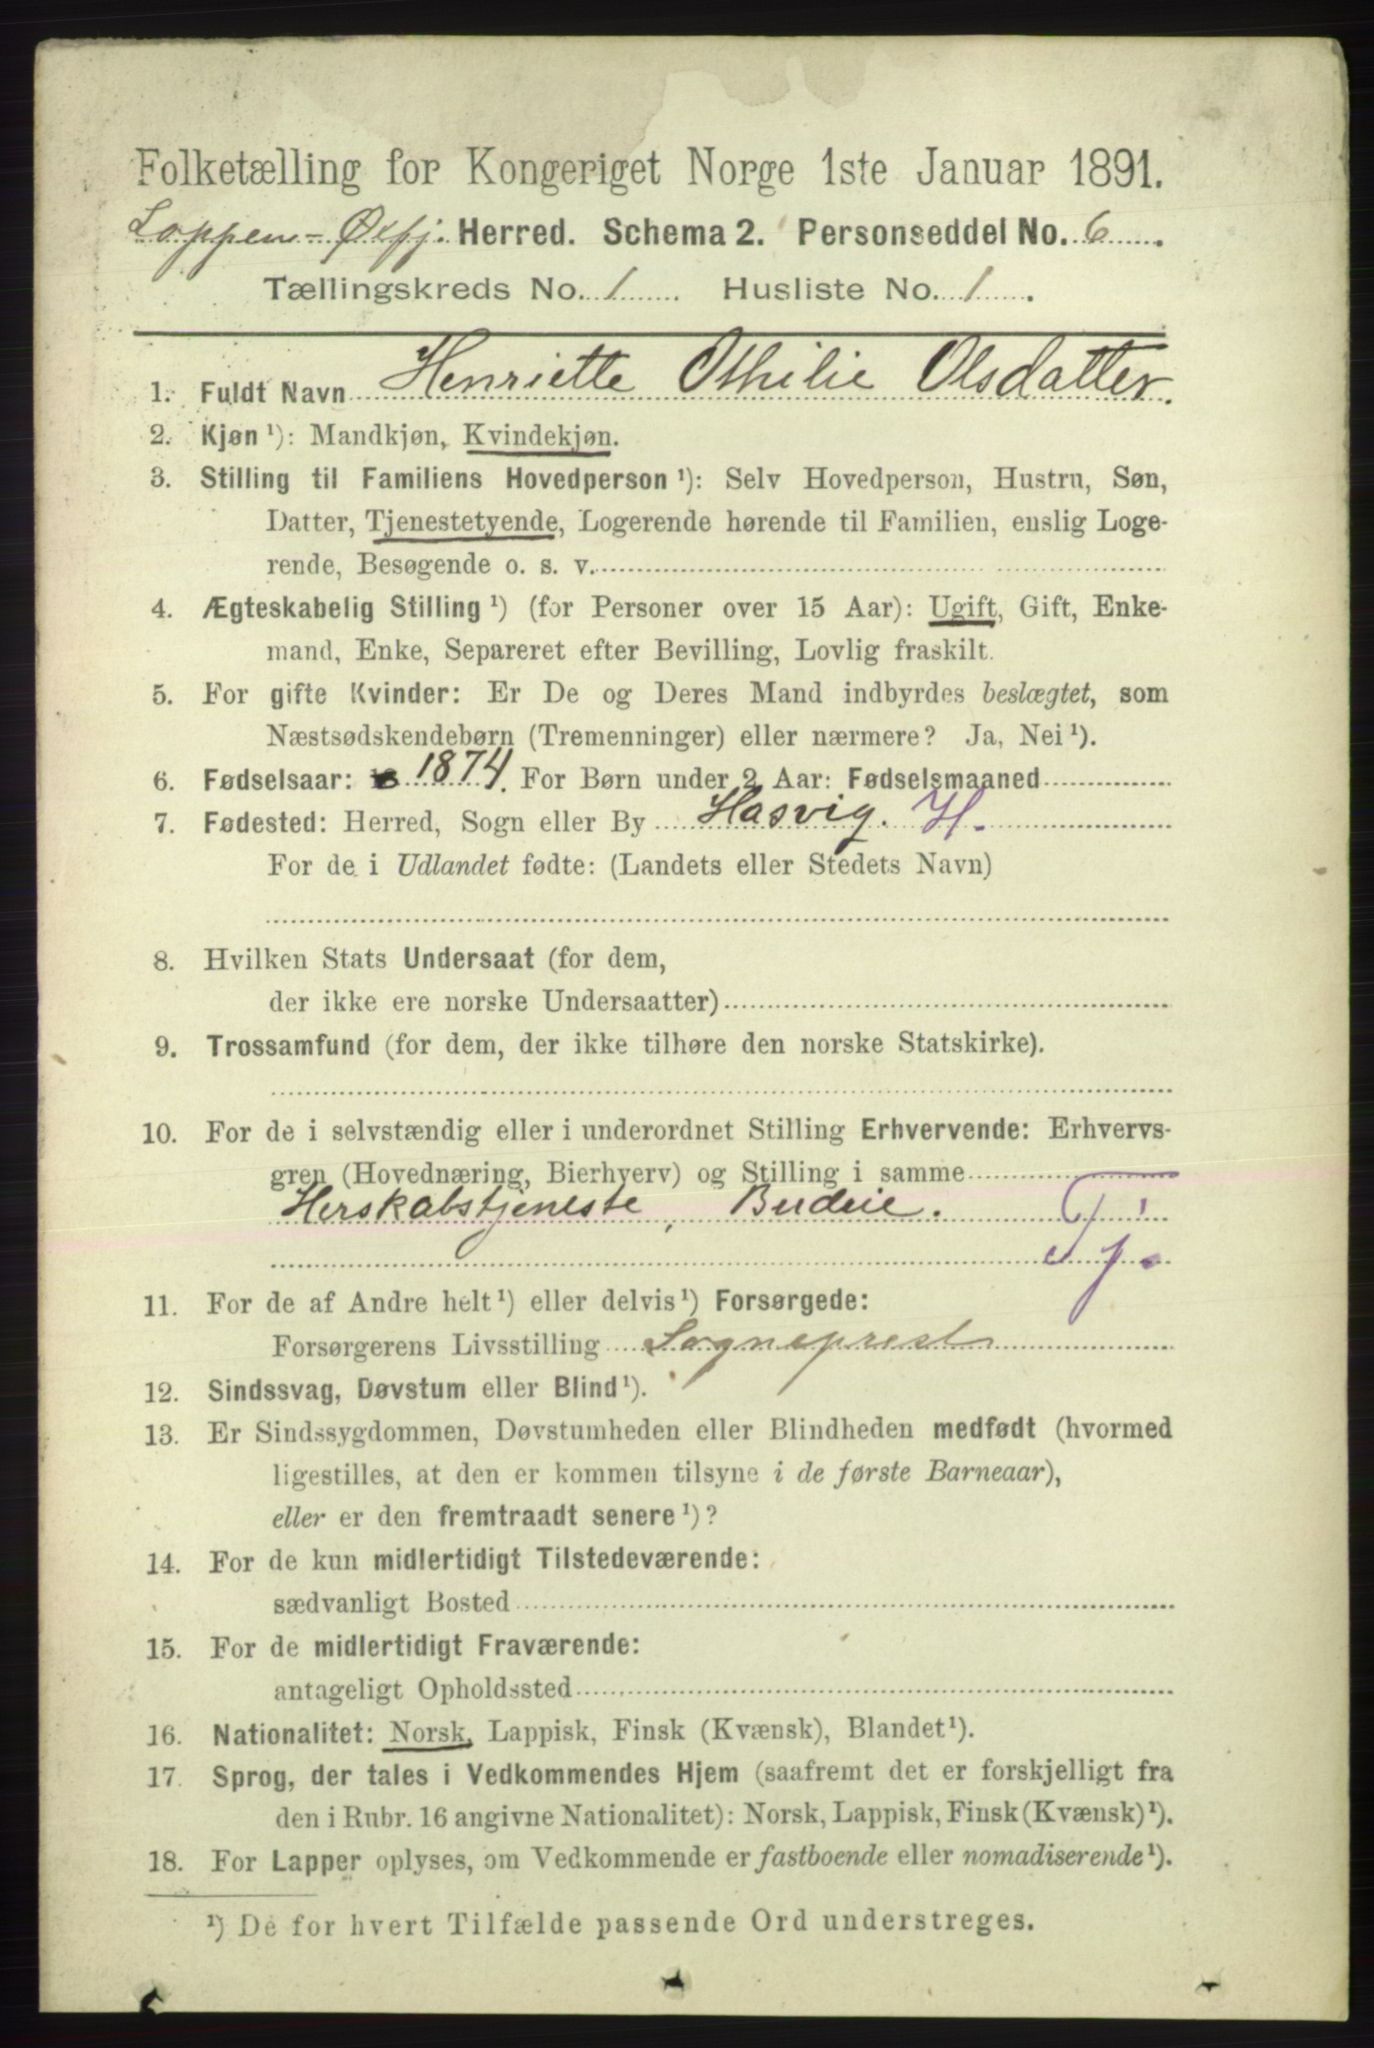 Folketælling for Kongeriget Norge 1ste Januar 1891.
Loppen-Øxfj. Herred. Schema 2. Personseddel No. 6.
Tællingskreds No. 1. Husliste No. 1.
1. Fuldt Navn Henriette Othilie Olsdatter.
2. Kjøn ¹): Mandkjøn, Kvindekjøn.
3. Stilling til Familiens Hovedperson ¹): Selv Hovedperson, Hustru, Søn,
Datter, Tjenestetyende, Logerende hørende til Familien, enslig Loge-
rende, Besøgende o. s. v.
4. Ægteskabelig Stilling ¹) (for Personer over 15 Aar): Ugift, Gift, Enke-
mand, Enke, Separeret efter Bevilling, Lovlig fraskilt.
5. For gifte Kvinder: Er De og Deres Mand indbyrdes beslægtet, som
Næstsødskendebørn (Tremenninger) eller nærmere? Ja, Nei ¹).
6. Fødselsaar: 1874. For Børn under 2 Aar: Fødselsmaaned
7. Fødested: Herred, Sogn eller By Hasvig. H.
For de i Udlandet fødte: (Landets eller Stedets Navn)
8. Hvilken Stats Undersaat (for dem,
der ikke ere norske Undersaatter)
9. Trossamfund (for dem, der ikke tilhøre den norske Statskirke).
10. For de i selvstændig eller i underordnet Stilling Erhvervende: Erhvervs-
gren (Hovednæring, Bierhverv) og Stilling i samme
Herskabstjeneste, Budeie.
Tj.
11. For de af Andre helt ¹) eller delvis ¹) Forsørgede:
Forsørgerens Livsstilling Sogneprest
12. Sindssvag, Døvstum eller Blind ¹).
13. Er Sindssygdommen, Døvstumheden eller Blindheden medfødt (hvormed
ligestilles, at den er kommen tilsyne i de første Barneaar),
eller er den fremtraadt senere ¹)?
14. For de kun midlertidigt Tilstedeværende:
sædvanligt Bosted
15. For de midlertidigt Fraværende:
antageligt Opholdssted
16. Nationalitet: Norsk, Lappisk, Finsk (Kvænsk), Blandet ¹).
17. Sprog, der tales i Vedkommendes Hjem (saafremt det er forskjelligt fra
den i Rubr. 16 angivne Nationalitet): Norsk, Lappisk, Finsk (Kvænsk) ¹).
18. For Lapper oplyses, om Vedkommende er fastboende eller nomadiserende ¹).
¹) De for hvert Tilfælde passende Ord understreges.